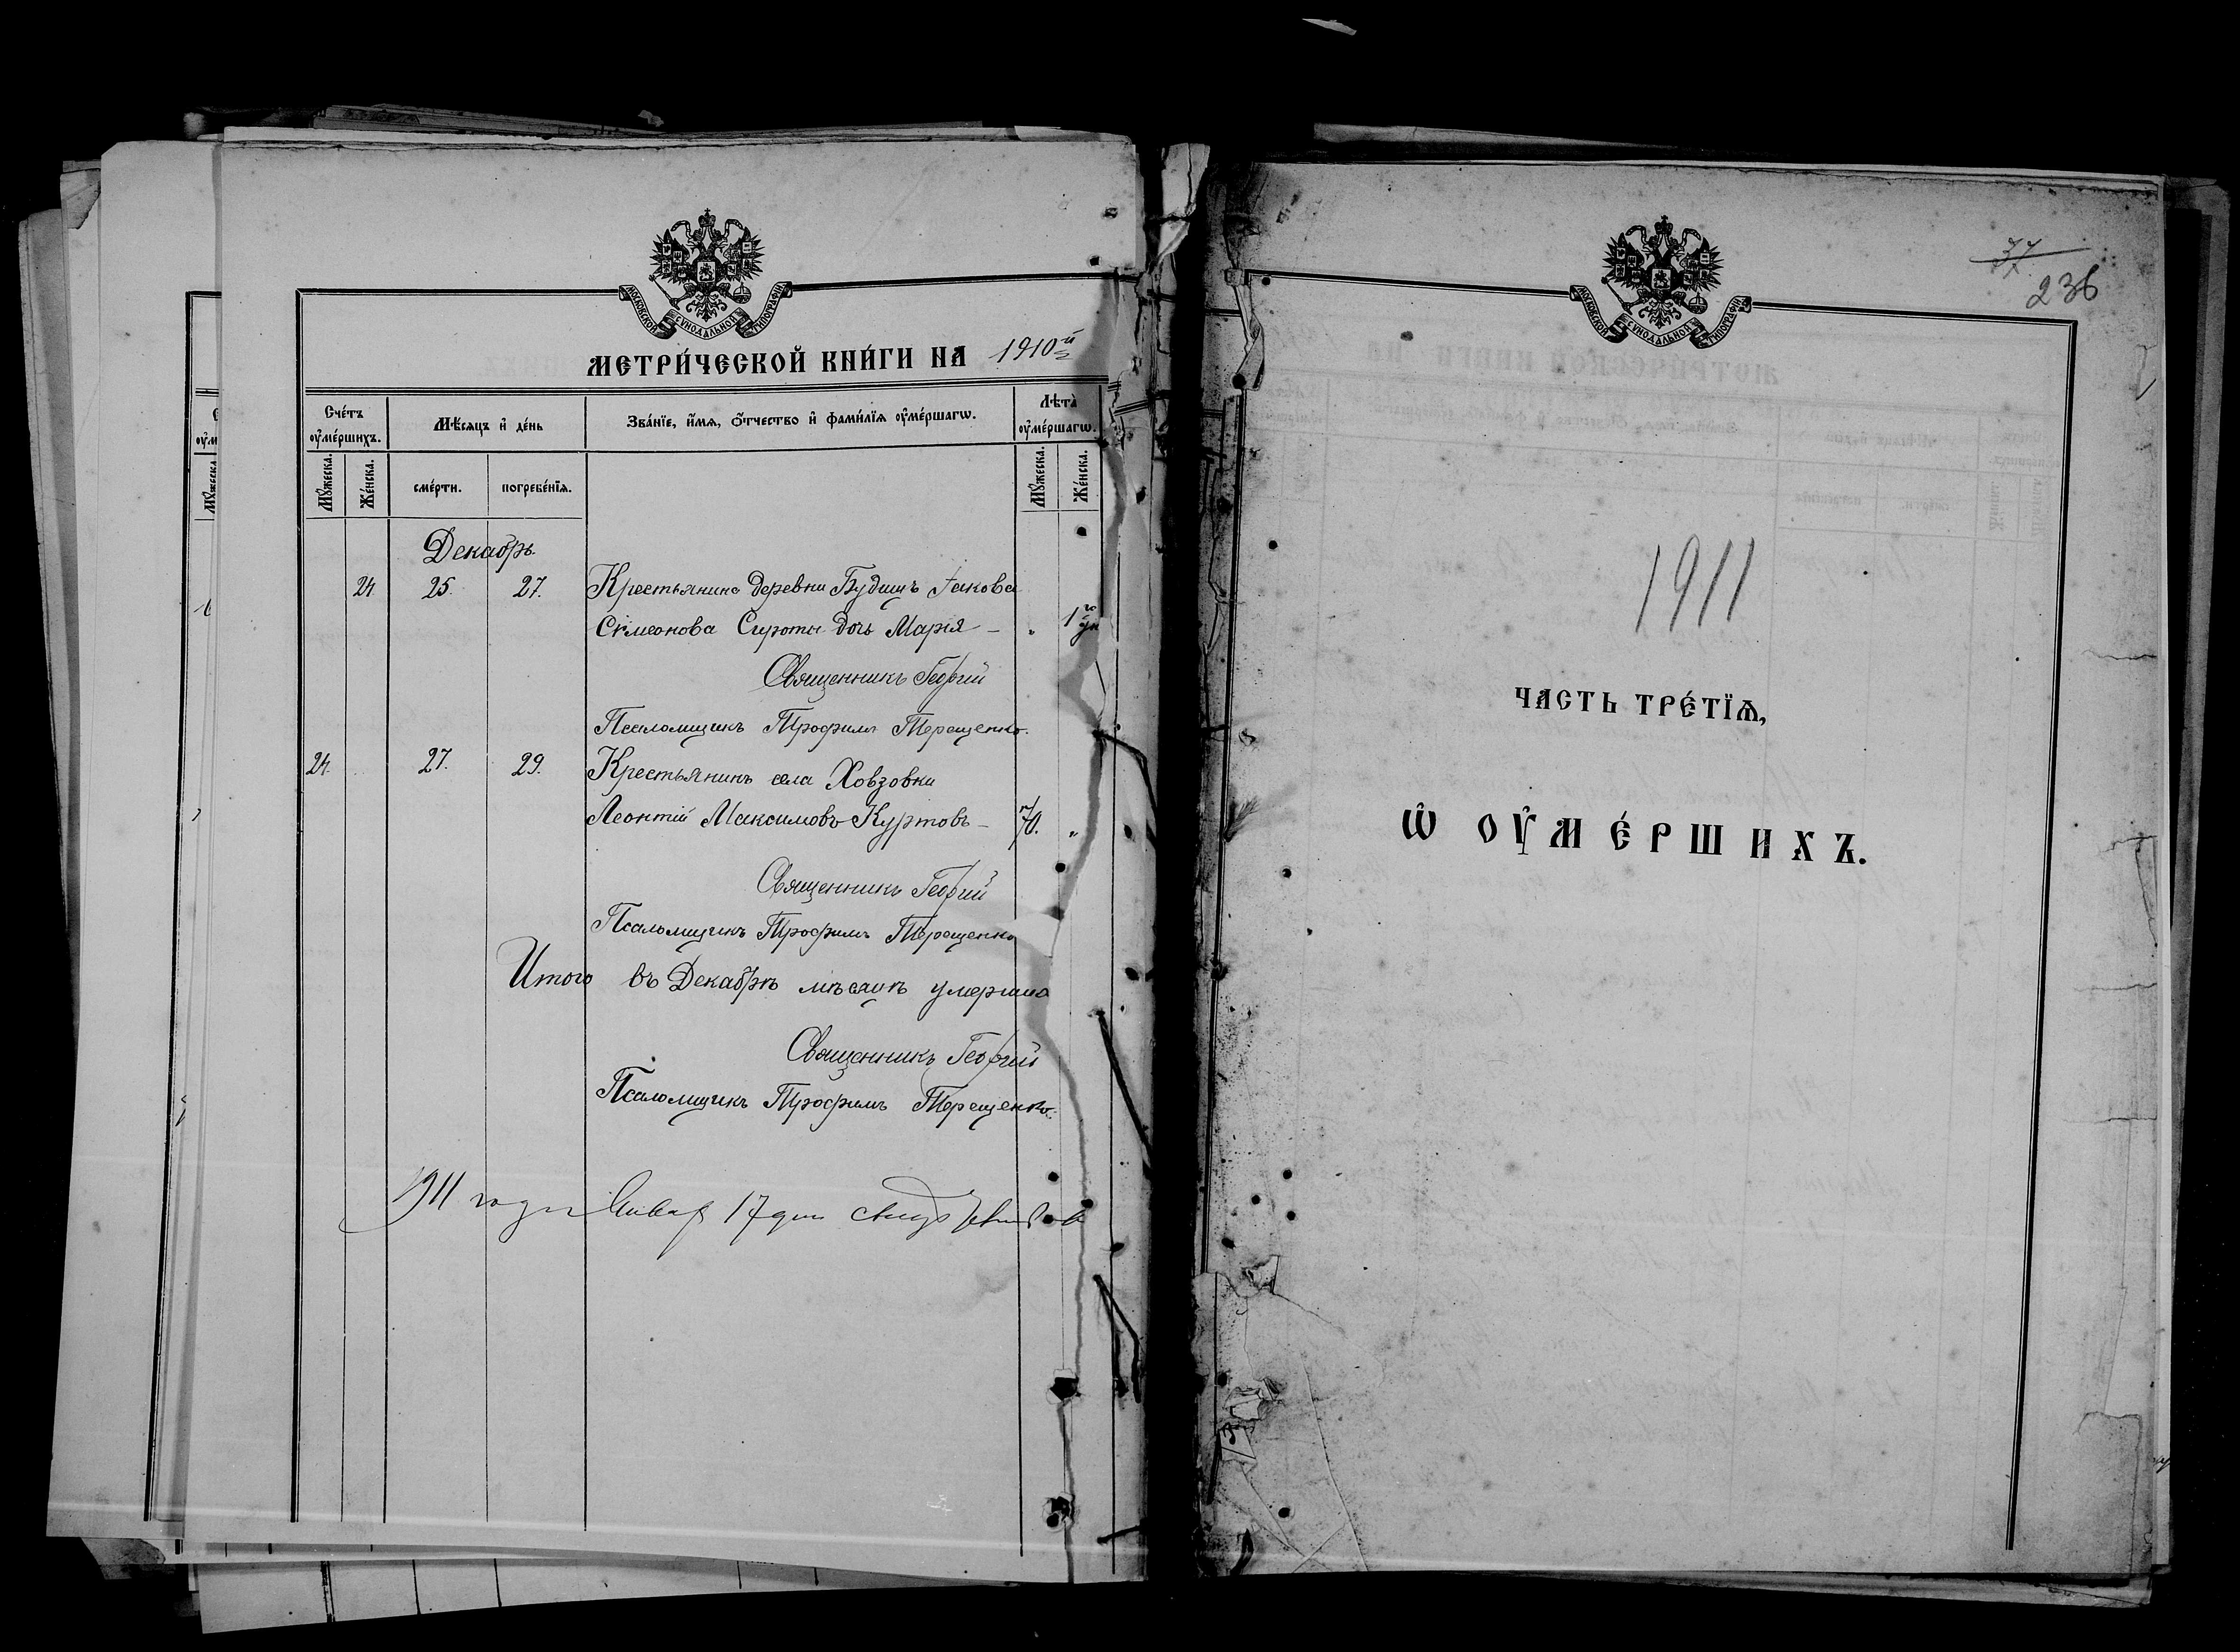 МОСКОВСКОЙ СѴНОДАЛЬНОЙ ТИПОГРАФІИ
МЕТРИ́ЧЕСКОЙ КНИ́ГИ НА 1910й
Сче́тъ оу҆ме́ршихъ.
Мѣ́сяцъ и҆ де́нь
Зва́нїе, и҆́мѧ, ѻ҆́тчество и҆ фами́лїѧ оу҆ме́ршагѡ.
Лѣ́та оу҆ме́ршагѡ.
Мꙋ́жеска. Же́нска. сме́рти. погребе́нїѧ. Мꙋ́жеска. Же́нска.
Декабрь
24 25. 27. Крестьянина деревни Будищъ Іакова
Сѵмеонова Сироты дочь Марія – „ 1го
Священникъ Георгій
Псаломщикъ Трофимъ Терещенко.
24. 27. 29. Крестьянинъ села Ховзовки
Леонтій Максимовъ Куртовъ – 70. „
Священникъ Георгій
Псаломщикъ Трофимъ Терещенко
Итого въ Декабрѣ мѣсяцѣ умершихъ
Священникъ Георгій
Псаломщикъ Трофимъ Терещенко.
1911 года Январ 17 дня
МОСКОВСКОЙ СѴНОДАЛЬНОЙ ТИПОГРАФІИ
236
1911
ЧАСТЬ ТРЕ́ТЇѦ,
Ѡ҆ ОУ҆МЕ́РШИХЪ.